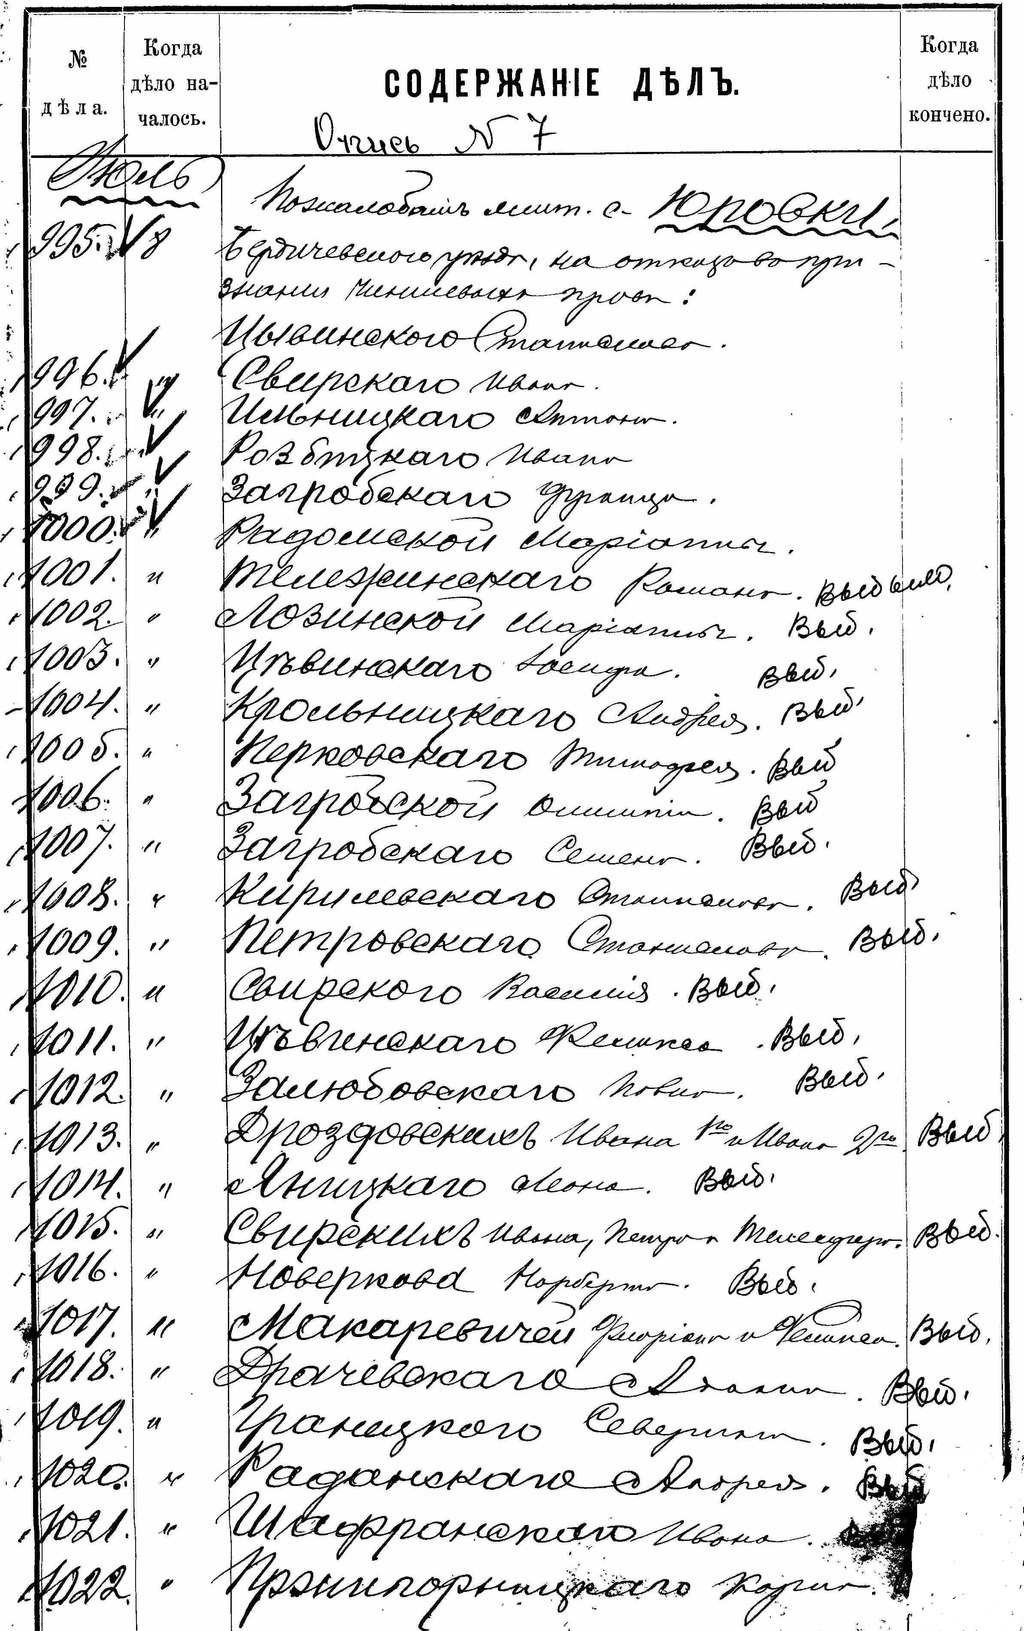 № дѣла.
Когда дѣло началось.
СОДЕРЖАНІЕ ДѢЛЪ.
Когда дѣло кончено.
Опись N 7
Июль
По жалобамъ с. Юровки,
995. 8 Бердичевского уезда, на отказ во при-
знании чиншевыхъ правъ:
Цывинского Станислава.
996. " Свирскаго Ивана.
997. " Ильницкаго Антона.
998. " Розбицкаго Ивана
999. " Загробскаго Франца.
1000. " Радомской Маріанны.
1001. " Тележинскаго Романа. Выбыло.
1002. " Лозинской Маріанны. Выб.
1003. " Цѣвинскаго Іосифа. Выб.
1004. " Крольницкаго Андрея. Выб.
1005. " Перковскаго Тимофея. Выб
1006. " Загробской Выб
1007. " Загробскаго Семена. Выб.
1008. " Кирилевскаго Станислава. Выб
1009. " Петровскаго Станислава. Выб.
1010. " Свирского Василія. Выб.
1011. " Цѣвинскаго Феликса. Выб.
1012. " Залюбовскаго Выб.
1013. " Дроздовскихъ Ивана 1го и Ивана 2го. Выб.
1014. " Яницкаго Леона. Выб.
1015. " Свирскихъ Ивана, Петра и Телесфора. Выб.
1016. " Новеркова Норберта. Выб.
1017. " Макаревичей Флоріана и Феликса. Выб.
1018. " Драчевскаго Выб.
1019. " Границкого Северина. Выб.
1020. " Раданскаго Андрея. Выб
1021. " Шафранскаго Ивана.
1022. " Пржигорницкаго Карла.